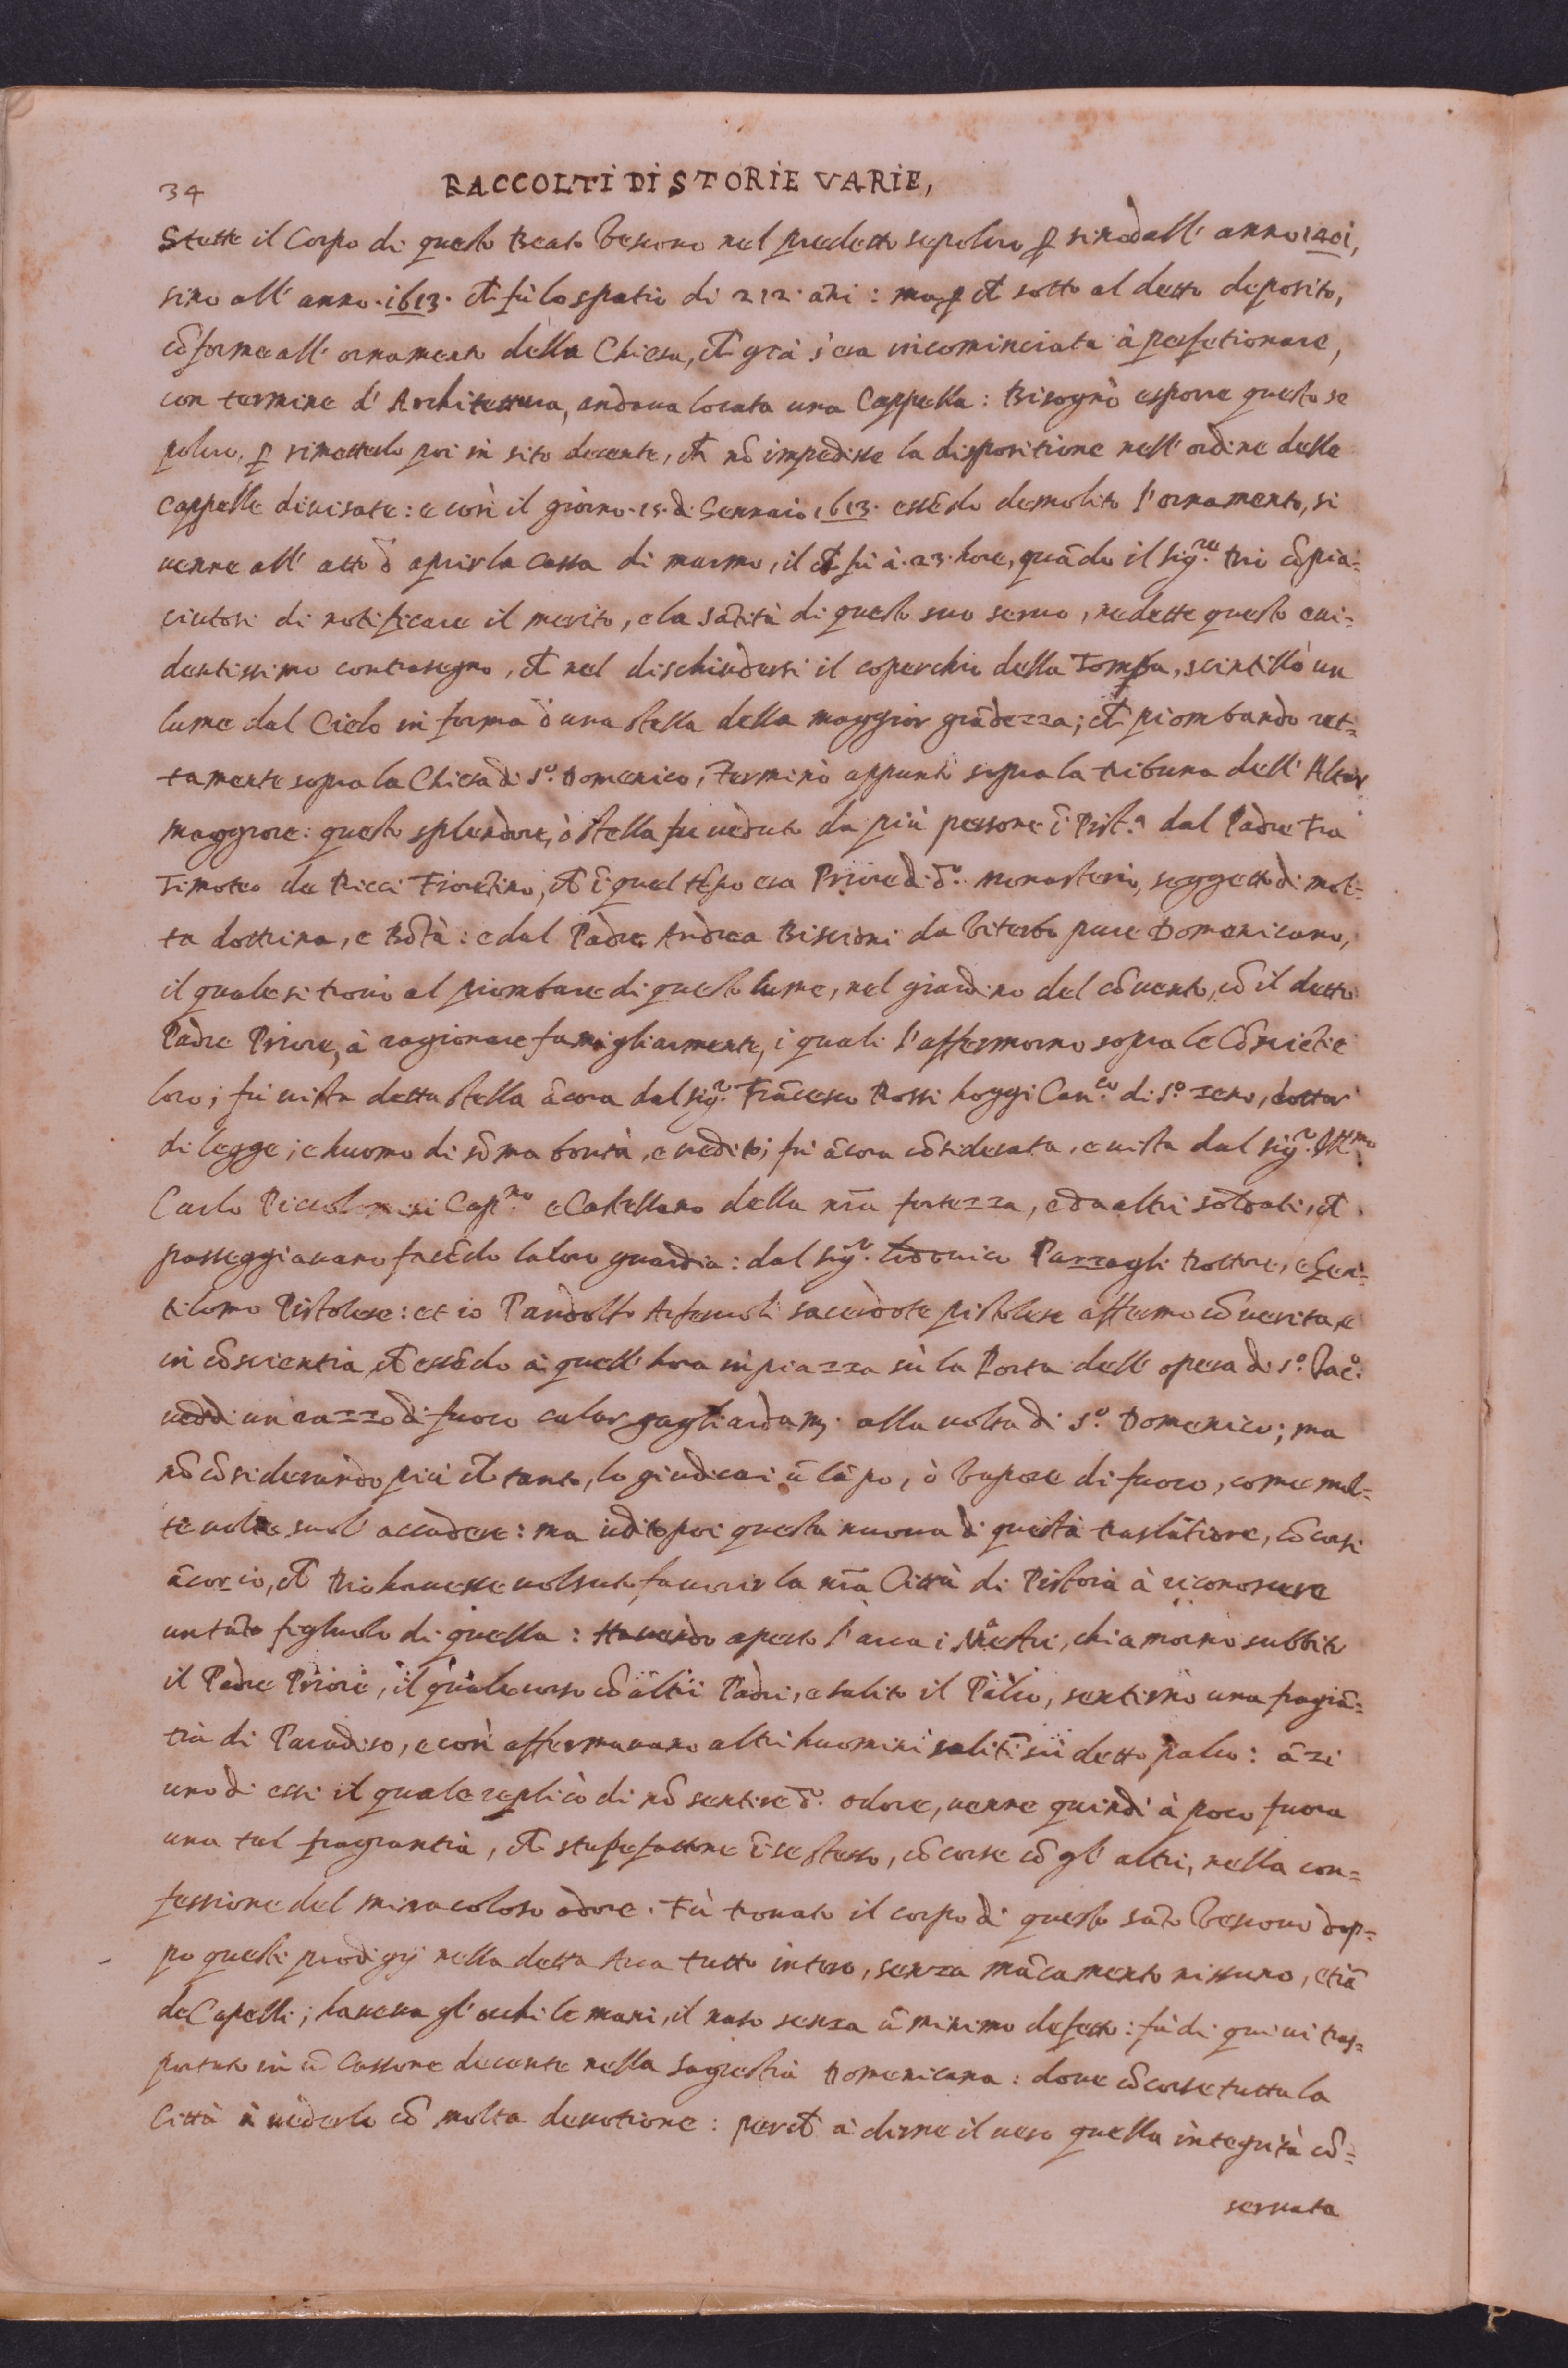 34
RACCOLTI DI STORIE VARIE,
Stette il Corpo di questo Beato Vescovo nel predetto sepolcro ꝑ sino dall' anno 1401,
sino all' anno .1613. ch̃ fù lo spatio di 212. añi : ma ꝑ ch̃ sotto al detto deposito,
cõforme all' ornamento della Chiesa, ch̃ già s'era incominciata à perfetionare,
con termine d' Architettura, andaua locata una Cappella : Bisognò esporre questo se
polcro, ꝑ rimetterlo poi in sito decente, ch̃ nõ impedisse la dispositione nell' ordine delle
Cappelle diuisate : e così il giorno .15. di Gennaio 1613. essẽdo demolito l' ornamento, si
uenne all' atto d aprir la Cassa di marmo, il ch̃ fù à .23. hore, quãdo il Sig.re Dio cõpia=
ciutosi di notificare il merito, e la Sãtità di questo suo seruo, ne dette questo eui=
dentissimo contrasegno, ch̃ nel dischiudersi il coperchio della Tomba, scintillò un
lume dal Cielo in forma d una stella della maggior grãdezza; ch̃ piombando ret=
tamente sopra la Chiesa di S.o Domenico, Terminò appunto sopra la tribuna dell' Altar
maggiore : questo splendore, ò stella fu ueduto da più persone ĩ Pist.a dal Padre Fra
Timoteo de Ricci Fiorẽtino, ch̃ ĩ quel tẽpo era Priore di d.o Monasterio, soggetto di mol=
ta dottrina, e Bõtà : e dal Padre Andrea Biscioni da Viterbo pure Domenicano,
il quale si trouò al piombare di questo lume, nel giardino del cõuento, cõ il detto
Padre Priore, à ragionare famigliarmente, i quali l'affermorno sopra le Cõsciẽtie
loro ; fù uista detta stella ãcora dal Sig.r Frãcesco Rossi hoggi Can.co di S.o Zeno, dottor
di legge ; e huomo di sõma bontà, e credito ; fù ãcora cõsiderata, e uista dal Sig.r Ill.mo
Carlo Piccolomini Cap.no e Castellano della nr̃a fortezza, e da altri soldati, ch̃
passeggiauano facẽdo la loro guardia : dal Sig.r Lodouico Pazzagli Dottore, e Gen=
tilomo Pistolese : et io Pandolfo Arferuoli sacerdote pistolese affermo cõ uerita, e
in cõscientia ch̃ essẽdo à quell' hora in piazza sù la Porta dell' opera di S.o Iac.o
ueddi un razzo di fuoco calar gagliardam. alla uolta di S.o Domenico ; ma
nõ cõsiderando più ch̃ tanto, lo giudicai ũ lãpo, ò Vapore di fuoco, come mol=
te uolte suol' accadere : ma udito poi questa nuoua di questa traslatione, cõcorsi
ãcor io, ch̃ Dio hauesse uolsuto fauorir la nr̃a Città di Pistoia à riconoscere
un tãto figliuolo di quella : Hauendo aperto l' arca i Maestri, chiamorno subbito
il Padre Priore, il quale corso cõ altri Padri, e salito il Palco, sentirno una fragrã=
tia di Paradiso, e così affermauano altri huomini saliti sù detto palco : ãzi
uno di essi il quale replicò di nõ sentire d.o odore, uenne quindi à poco fuora
una tal fragrantia, ch̃ stupefattone ĩ se stesso, cõcorse cõ gl' altri, nella con=
fessione del miracoloso odore. Fù trouato il corpo di questo Sãto Vescouo dop=
po questi prodigij nella detta Arca tutto intero, senza mãcamento nissuno, etiã
de Capelli ; haueua gl' occhi le mani, il naso senza ũ minimo difetto : fù di quiui tras=
portato in ũ Cassone decente nella Sagrestia Domenicana : doue cõcorse tutta la
Città à uederlo cõ molta deuotione : perch̃ à dirne il uero quella integrità cõ=
seruata